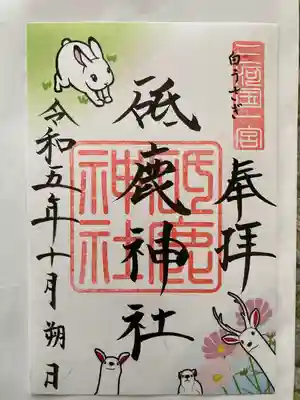 三河国一宮
白うさぎ
奉拝
砥鹿神社
砥鹿神社
令和五年十月朔日